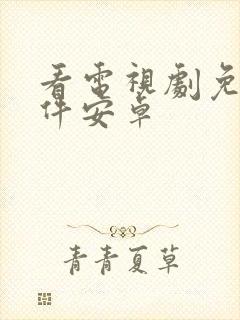 看電視劇免
件安卓
青青夏草